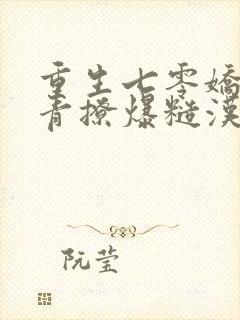 重生七零嬌
青撩爆糙漢
阮莹